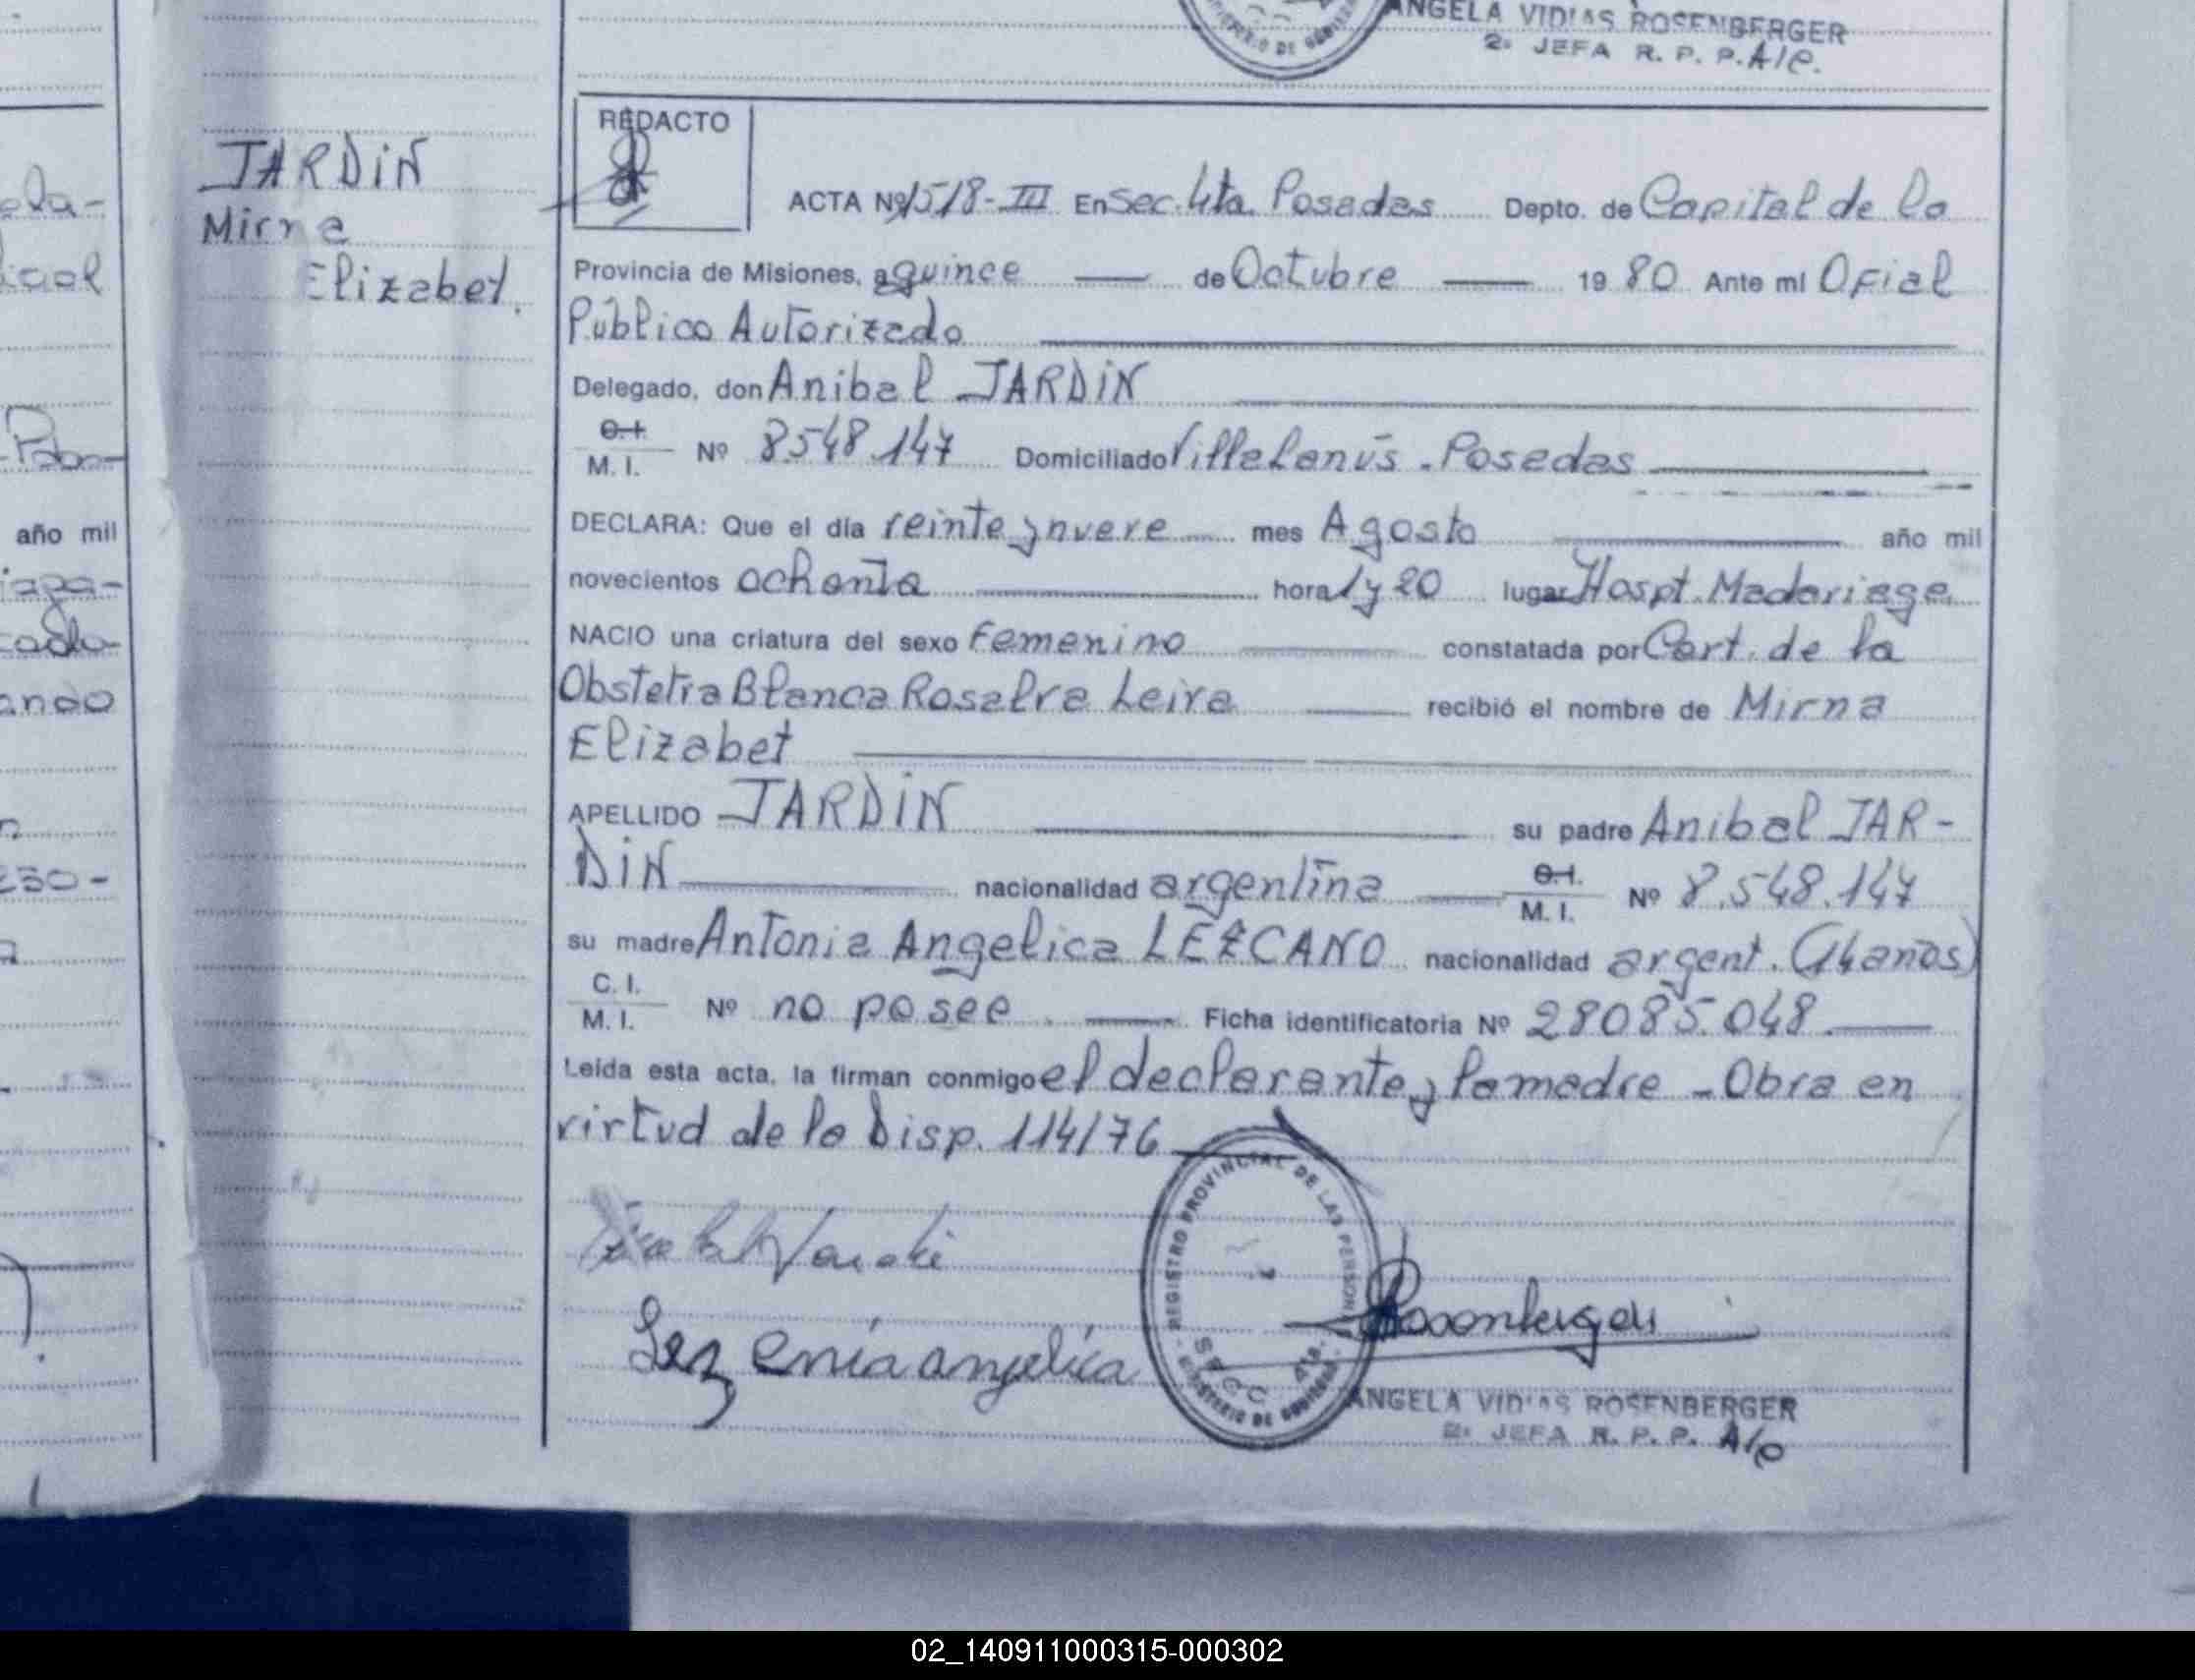 ANGELA VIDIAS ROSENBERGER
2. JEFA R. P. P. A/c.
JARDIN
Mirna
Elizabet.
REDACTO
ACTA Nº 1518-III En Sec. 4ta. Posadas Depto. de Capital de la
Provincia de Misiones, a quince de Octubre 1980 Ante mi Oficial
Público Autorizado
Delegado, don Anibal JARDIN
C.I.
M. I. Nº 8.548.147 Domiciliado Villa Lanús - Posadas
DECLARA: Que el día veinte y nueve mes Agosto año mil
novecientos ochenta hora 1 y 20 lugar Hospt. Madariaga
NACIO una criatura del sexo Femenino constatada por Cert. de la
Obstetra Blanca Rosalva Leiva recibió el nombre de Mirna
Elizabet
APELLIDO JARDIN su padre Anibal JAR-
DIN nacionalidad argentina C.I.
M. I. Nº 8.548.147
su madre Antonia Angelica LEZCANO nacionalidad argent. (14 años)
C. I.
M. I. Nº no posee Ficha identificatoria Nº 28085.048
Leída esta acta, la firman conmigo el declarante y la madre - Obra en
virtud de la Disp. 114/76
REGISTRO PROVINCIAL DE LAS PERSONAS
SECC 4ta.
MINISTERIO DE GOBIERNO
angelica
Rosenberger
ANGELA VIDIAS ROSENBERGER
2. JEFA R. P. P. A/c
año mil
02_140911000315-000302